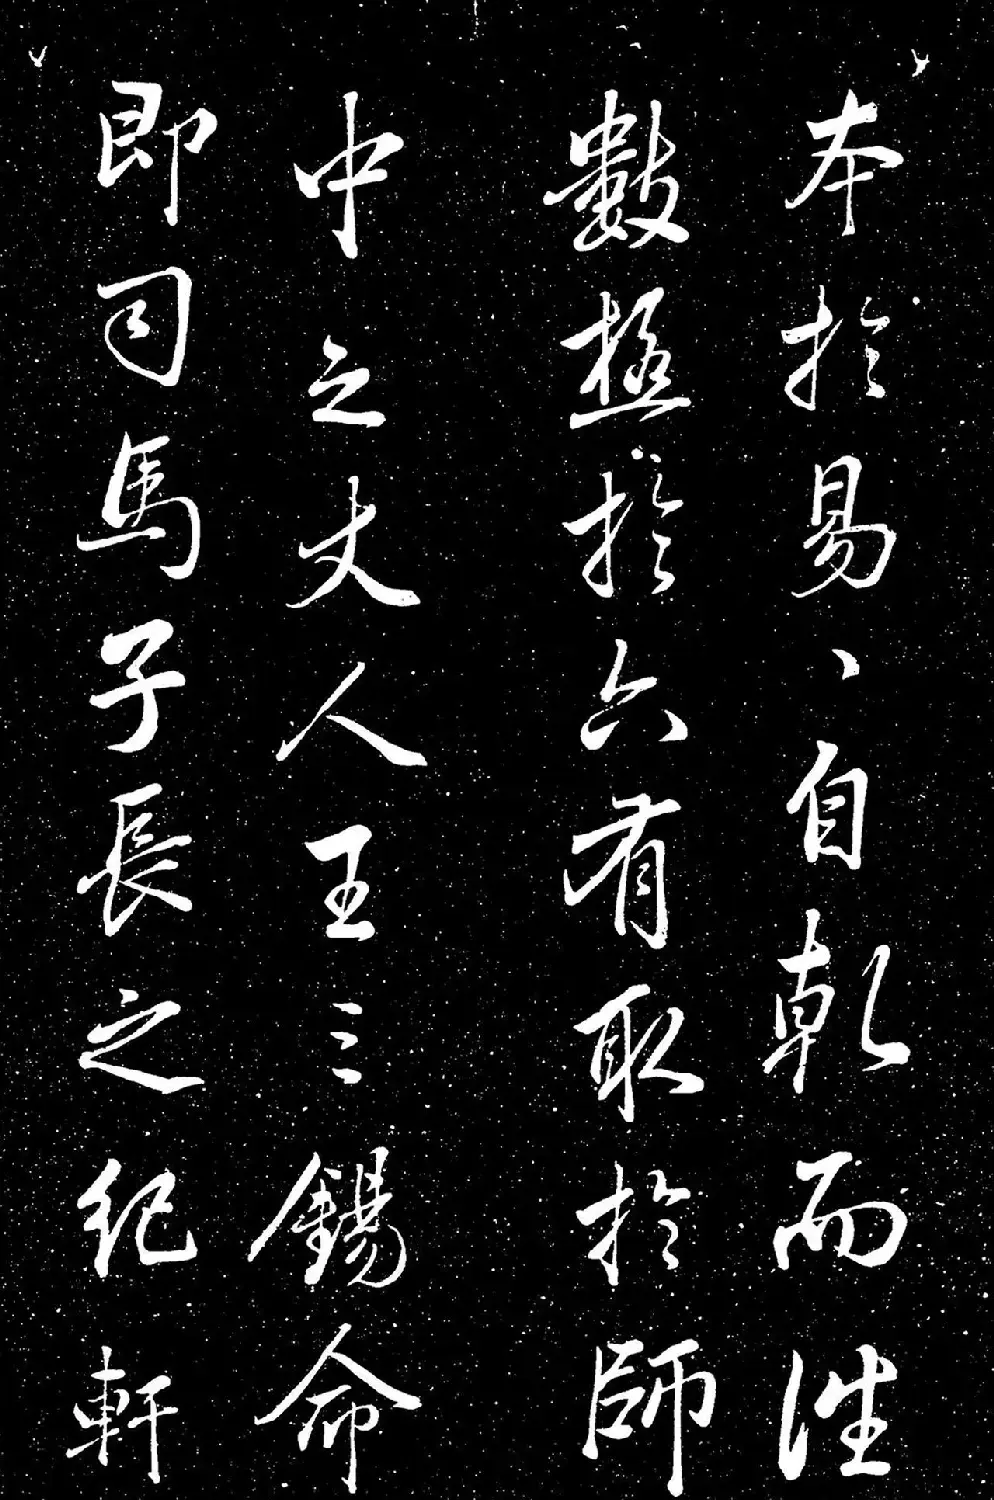 本於易、自乾而往
數極於六有取於師
中之丈人王三錫命
即司馬子長之紀軒